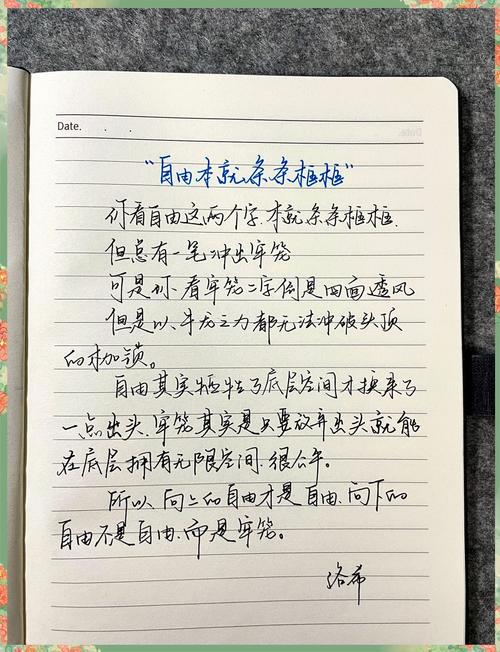 Date. . .
"自由本就条条框框"
你看自由这两个字.本就条条框框.
但总有一笔冲出牢笼
可是你.看牢笼二字倒是四面透风
但是以、牛龙之力都无法冲破头顶
的枷锁。
自由其实牺牲了底层空间才换来了
一点出头、牢笼其实是只要放弃出头就能
在底层拥有无限空间.很公平。
所以、向上的自由才是自由.向下的
自由不是自由.而是牢笼。
洛希